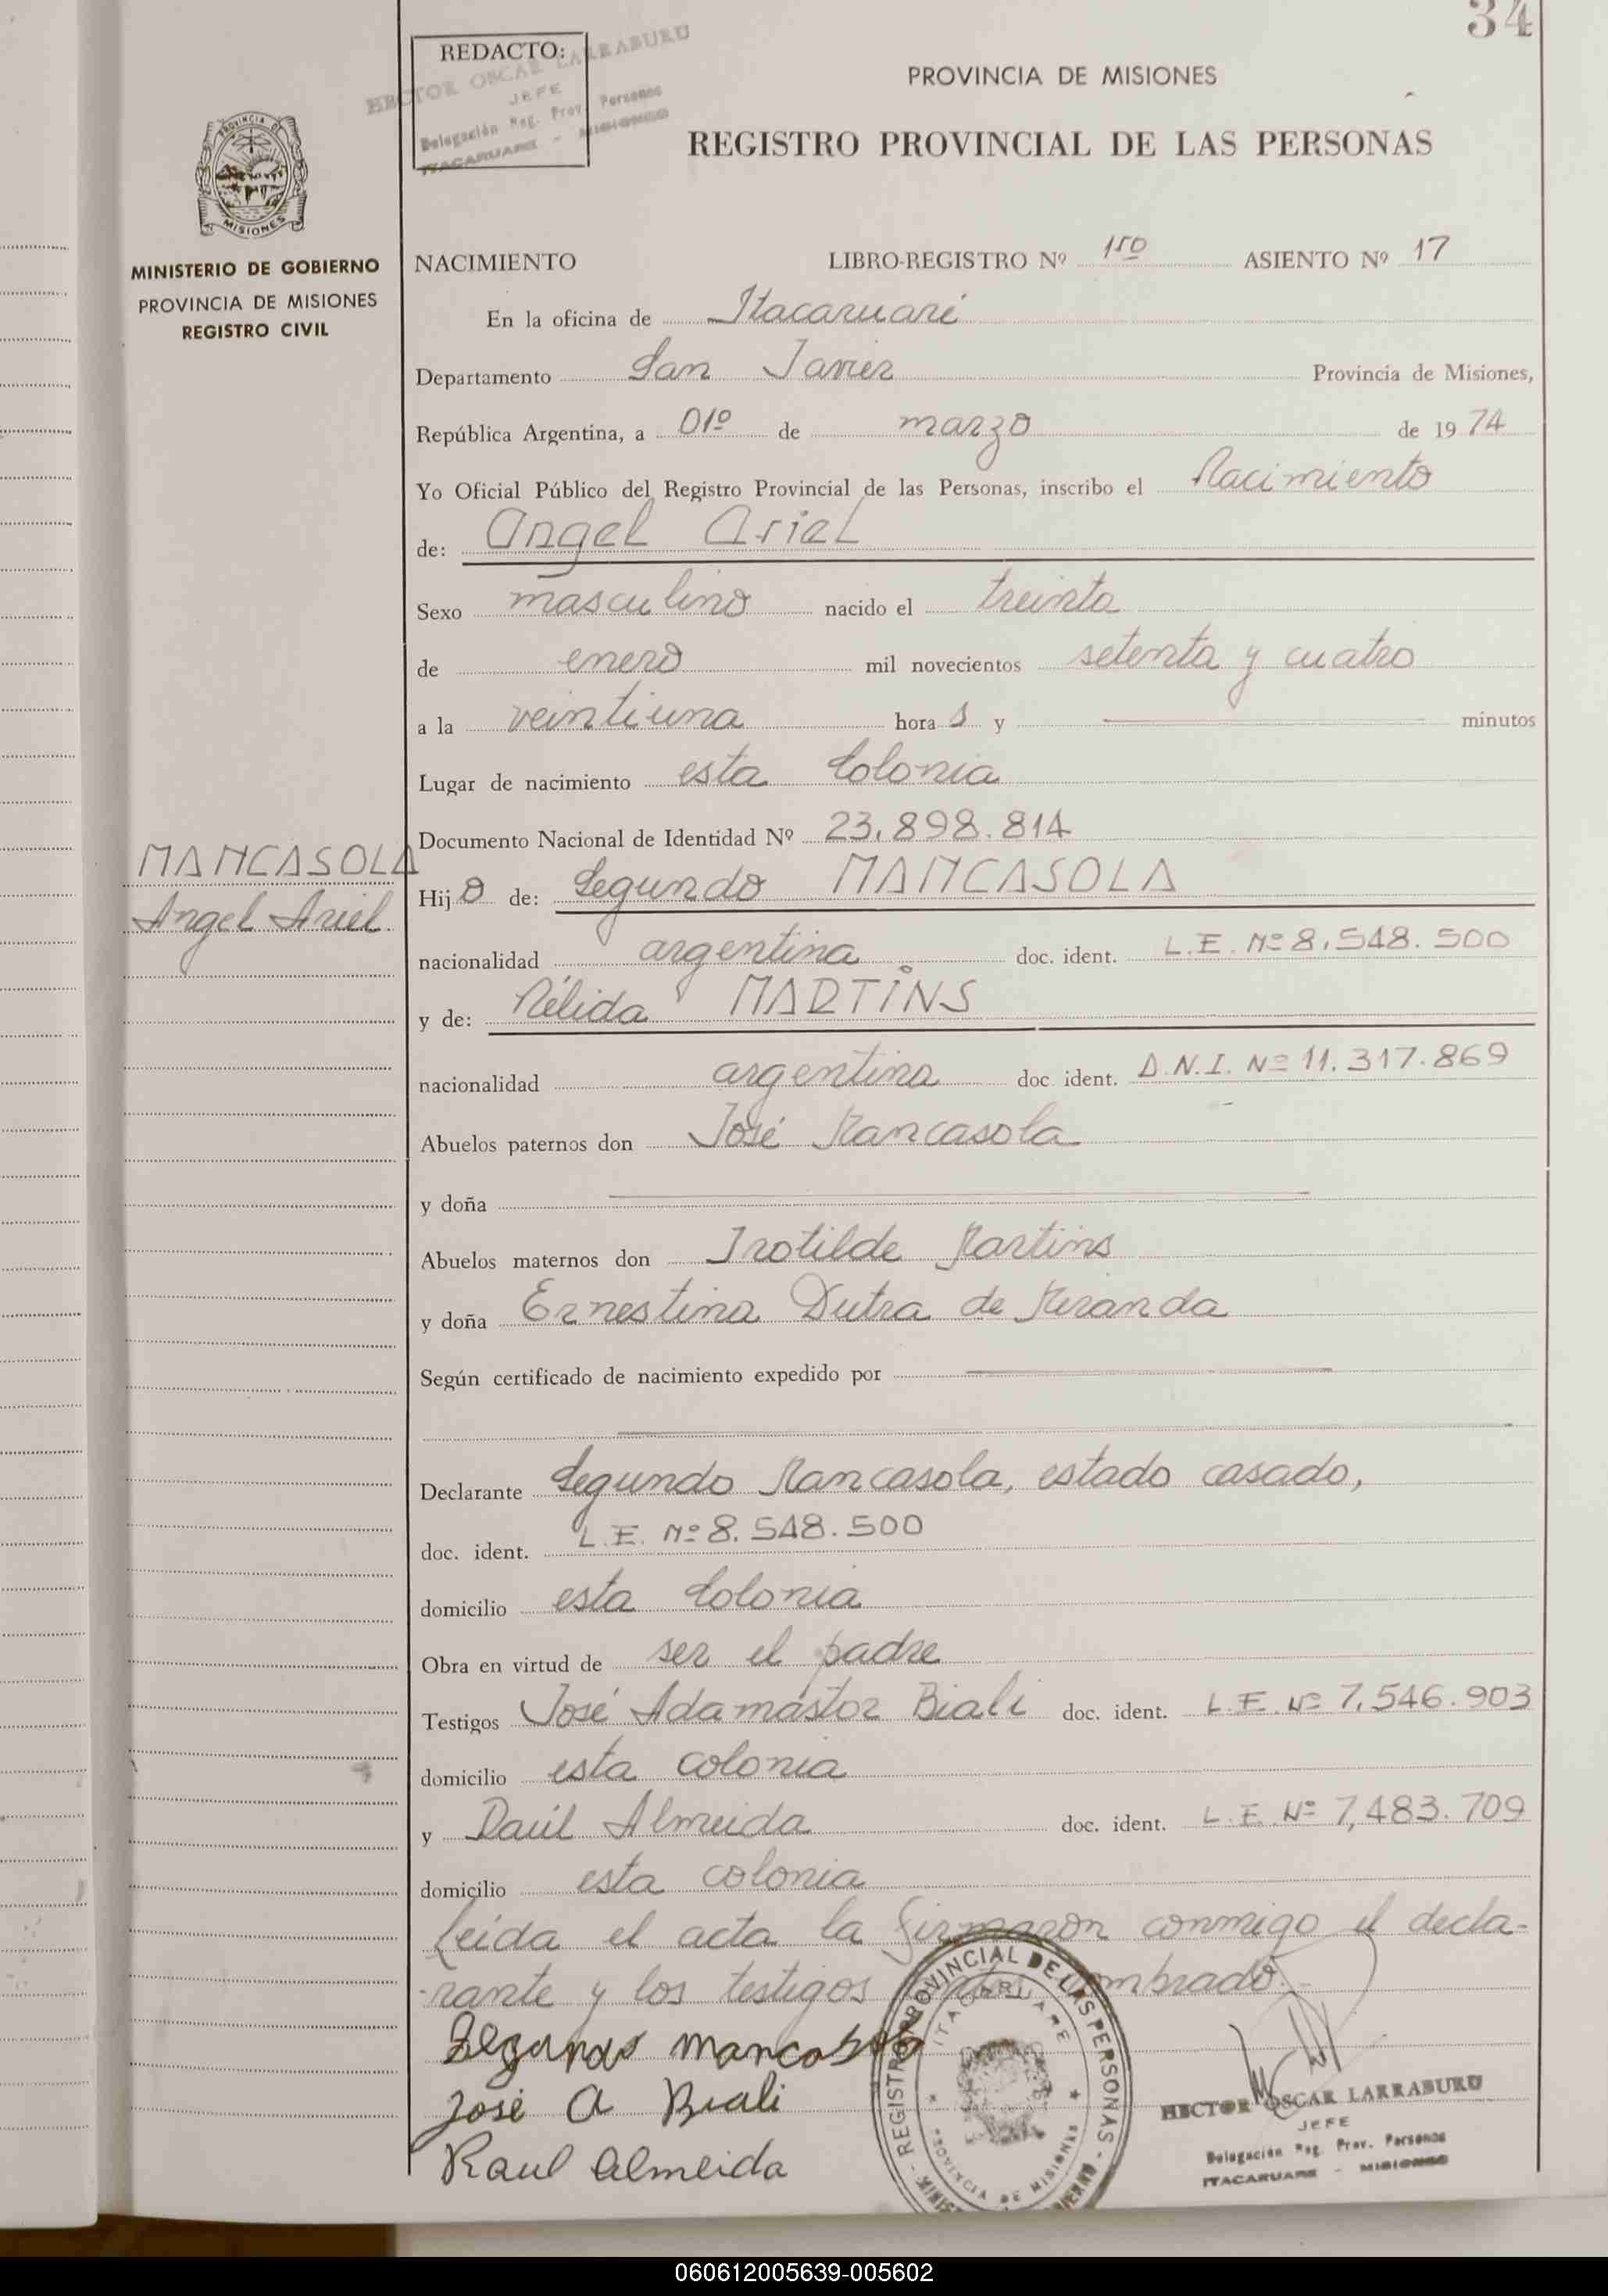 34
REDACTO:
HECTOR OSCAR LARRABURU
JEFE
Delegación Reg. Prov. Personas
ITACARUARE - MISIONES
PROVINCIA DE MISIONES
REGISTRO PROVINCIAL DE LAS PERSONAS
PROVINCIA DE
MISIONES
MINISTERIO DE GOBIERNO
PROVINCIA DE MISIONES
REGISTRO CIVIL
NACIMIENTO LIBRO-REGISTRO Nº 1ro ASIENTO Nº 17
En la oficina de Itacaruaré
Departamento San Javier Provincia de Misiones,
República Argentina, a 01º de marzo de 1974
Yo Oficial Público del Registro Provincial de las Personas, inscribo el Nacimiento
de: Angel Ariel
Sexo masculino nacido el treinta
de enero mil novecientos setenta y cuatro
a la veintiuna hora s y minutos
Lugar de nacimiento esta Colonia
Documento Nacional de Identidad Nº 23.898.814
MANCASOLA
Angel Ariel
Hijo de: Segundo MANCASOLA
nacionalidad argentina doc. ident. L.E. Nº 8.548.500
y de: Nélida MARTINS
nacionalidad argentina doc. ident. D.N.I. Nº 11.317.869
Abuelos paternos don José Mancasola
y doña
Abuelos maternos don Irotilde Martins
y doña Ernestina Dutra de Miranda
Según certificado de nacimiento expedido por
Declarante Segundo Mancasola, estado casado,
doc. ident. L.E. Nº 8.548.500
domicilio esta Colonia
Obra en virtud de ser el padre
Testigos José Adamástor Biali doc. ident. L.E. Nº 7.546.903
domicilio esta colonia
y Raúl Almeida doc. ident. L.E. Nº 7,483.709
domicilio esta colonia
Leída el acta la firmaron conmigo el decla-
-rante y los testigos antes nombrado.-
Segundo mancasola
José A Biali
Raul Almeida
REGISTRO PROVINCIAL DE LAS PERSONAS
ITACARUARE
PROVINCIA DE MISIONES
HECTOR OSCAR LARRABURU
JEFE
Delegación Reg. Prov. Personas
ITACARUARE - MISIONES
060612005639-005602